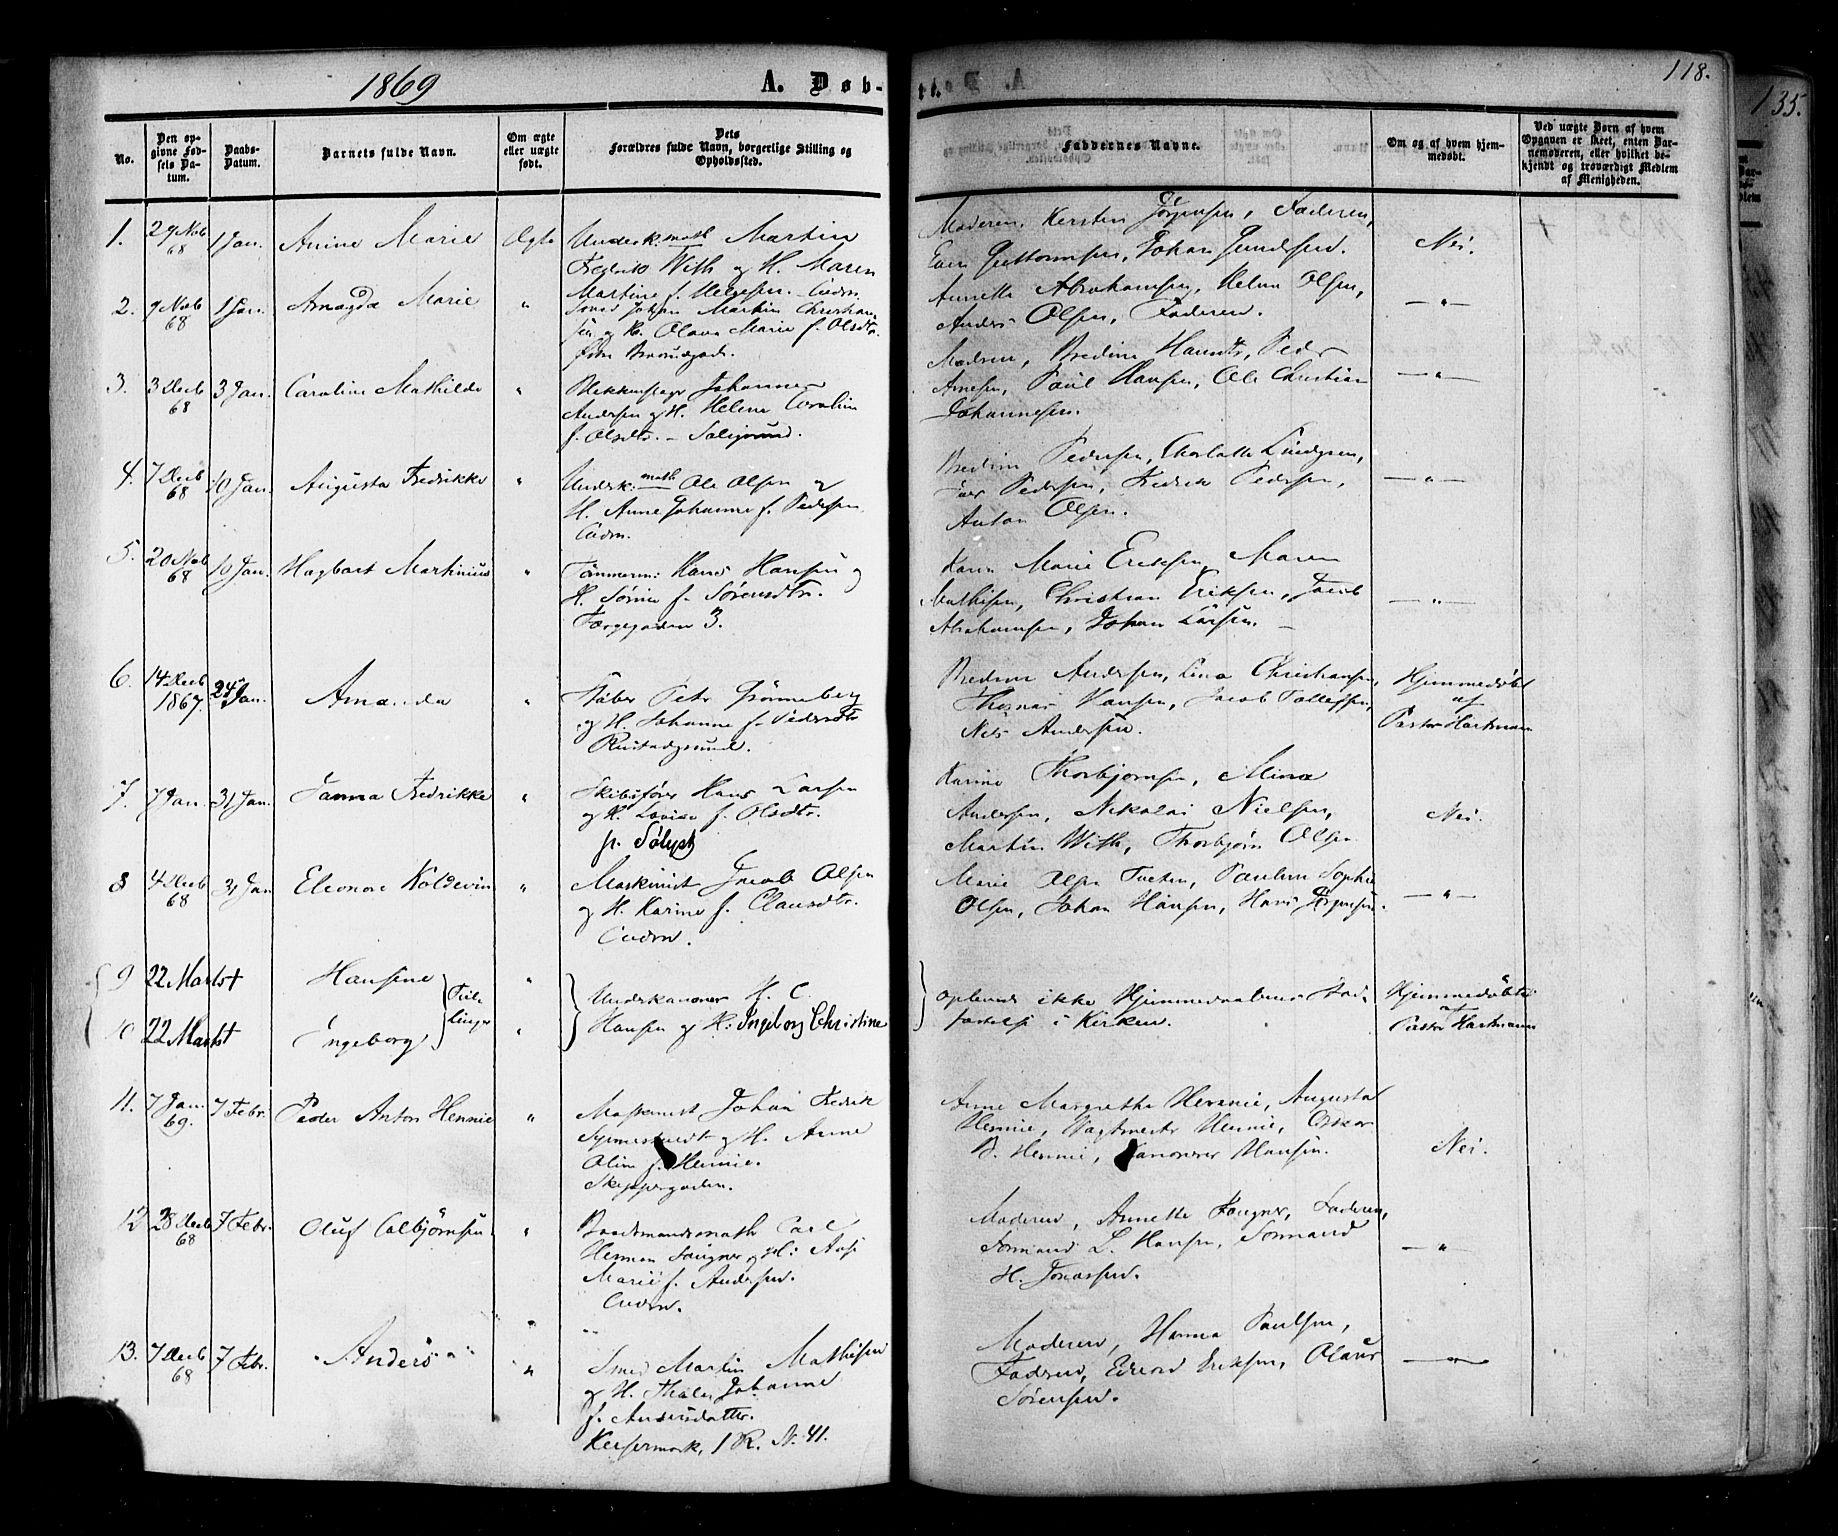 1869
A. Døb-
118.
135.
No.
Den op-
givne Fød-
sels Da-
tum.
Daabs-
Datum.
Barnets fulde Navn.
Om ægte
eller uægte
født.
Dets
Forældres fulde Navn, borgerlige Stilling og
Opholdssted.
Faddernes Navne.
Om og af hvem hjem-
medøbt.
Ved uægte Børn af hvem
Opgaven er skeet, enten Bar-
nemoderen, eller hvilket be-
kjendt og troværdigt Medlem
af Menigheden.
1.
29 Nob
68
1 Jan.
Anine Marie
Ægte
Undsk. math Martin
Fredrik With og H. Maren
Martine f. Helgesen.
Moderen, Kersten Jørgensen, Faderen,
Guttormsen, Johan Gundersen.
Nei.
2.
9 Nob
68
1 Jan.
Amagda Marie
"
Smed Johan Martin Christian
sen og H. Olava Marie f. Olsdtr.
Annette Abrahamsen, Helene Olsen,
Anders Olsen, Faderen.
— " —
3.
3 Decb
68
3 Jan.
Caroline Mathilde
"
Blikkenslager Johannes
Andersen og H. Helene Caroline
f. Olsdtr.
Moderen, Bredine Hansdtr, Peder
Arnesen, Paul Hansen, Ole Christian
Johannesen.
— " —
4.
7 Decb
68
10 Jan.
Augusta Fredrikke
"
Undsk: math Ole Olsen og
H. Anne Johanne f. Pedersen
Bredine Pedersen, Charlotte Lindgren,
Iver Pedersen, Fredrik Pedersen,
Anton Olsen.
— " —
5.
20 Nob
68
10 Jan.
Hagbart Martinius
"
Tømmerm: Hans Hansen og
H. Sørine f. Sørensdtr.
Færgegaden 3.
Karen Marie Eriksen, Maren
Mathisen, Christian Eriksen, Jacob
Abrahamsen, Johan Larsen. —
— " —
6.
14 Decb
1867.
24 Jan.
Amanda
"
Støber Petr Grønneberg
og H. Johanne f. Pedersdtr
Rustadgrund.
Bredine Andersen, Lina Christiansen,
Thomas Hansen, Jacob Tollefsen,
Nils Andersen.
Hjemmedøbt
af
Pastor Hartmann
7.
7 Jan.
31 Jan.
Janna Fredrikke
"
Skibsfører Hans Larsen
og H. Lovise f. Olsdtr.
p. Sølyst
Karine Thorbjørnsen, Mina
Andersen, Nikolai Nielsen,
Martin With, Thorbjørn Olsen
Nei.
8
4 Decb
68
31 Jan
Eleonore Koldevin
"
Maskinist Jacob Olsen
og H. Karine f. Clausdtr.
Marie Olsen Tveten, Pauline Sophie
Olsen, Johan Hansen, Hans Jørgensen.
— " —
9
22 Marts†
Hansine
"
10
22 Marts†
Ingeborg
Tvil-
linger
"
Underkanoner H. C.
Hansen og H: Ingeborg Christine
oplevede ikke Hjemmedaabens Stad-
fæstelse i Kirken.
Hjemmedøbte
af
Pastor Hartmann
11.
7 Jan.
69.
7 Febr.
Peder Anton Hennie
"
Maskinist Johan Fredrik
og H. Anne
Oline f. Hennie.
Skippergaden.
Anne Margrethe Hennie, Augusta
Hennie, Vagtmester Hennie, Oskar
B. Hennie, Kanoneer Hansen.
Nei.
12
28 Decb
68
7 Febr.
Oluf Colbjørnsen
"
Baadsmandsmath Carl
Herman Fougner og H: Aase
Marie f. Andersen.
Moderen, Annette Fougner, Faderen,
Formand L. Hansen, Formand
H. Jonassen.
— " —
13.
7 Decb
68
7 Febr.
Anders
"
Smed Martin Mathisen
og H. Thalea Johanne
f. Andersdatter.
1 R. N. 41.
Moderen, Hanna Paulsen,
Faderen, Edvard Eriksen, Olaus
Sørensen.
— " —